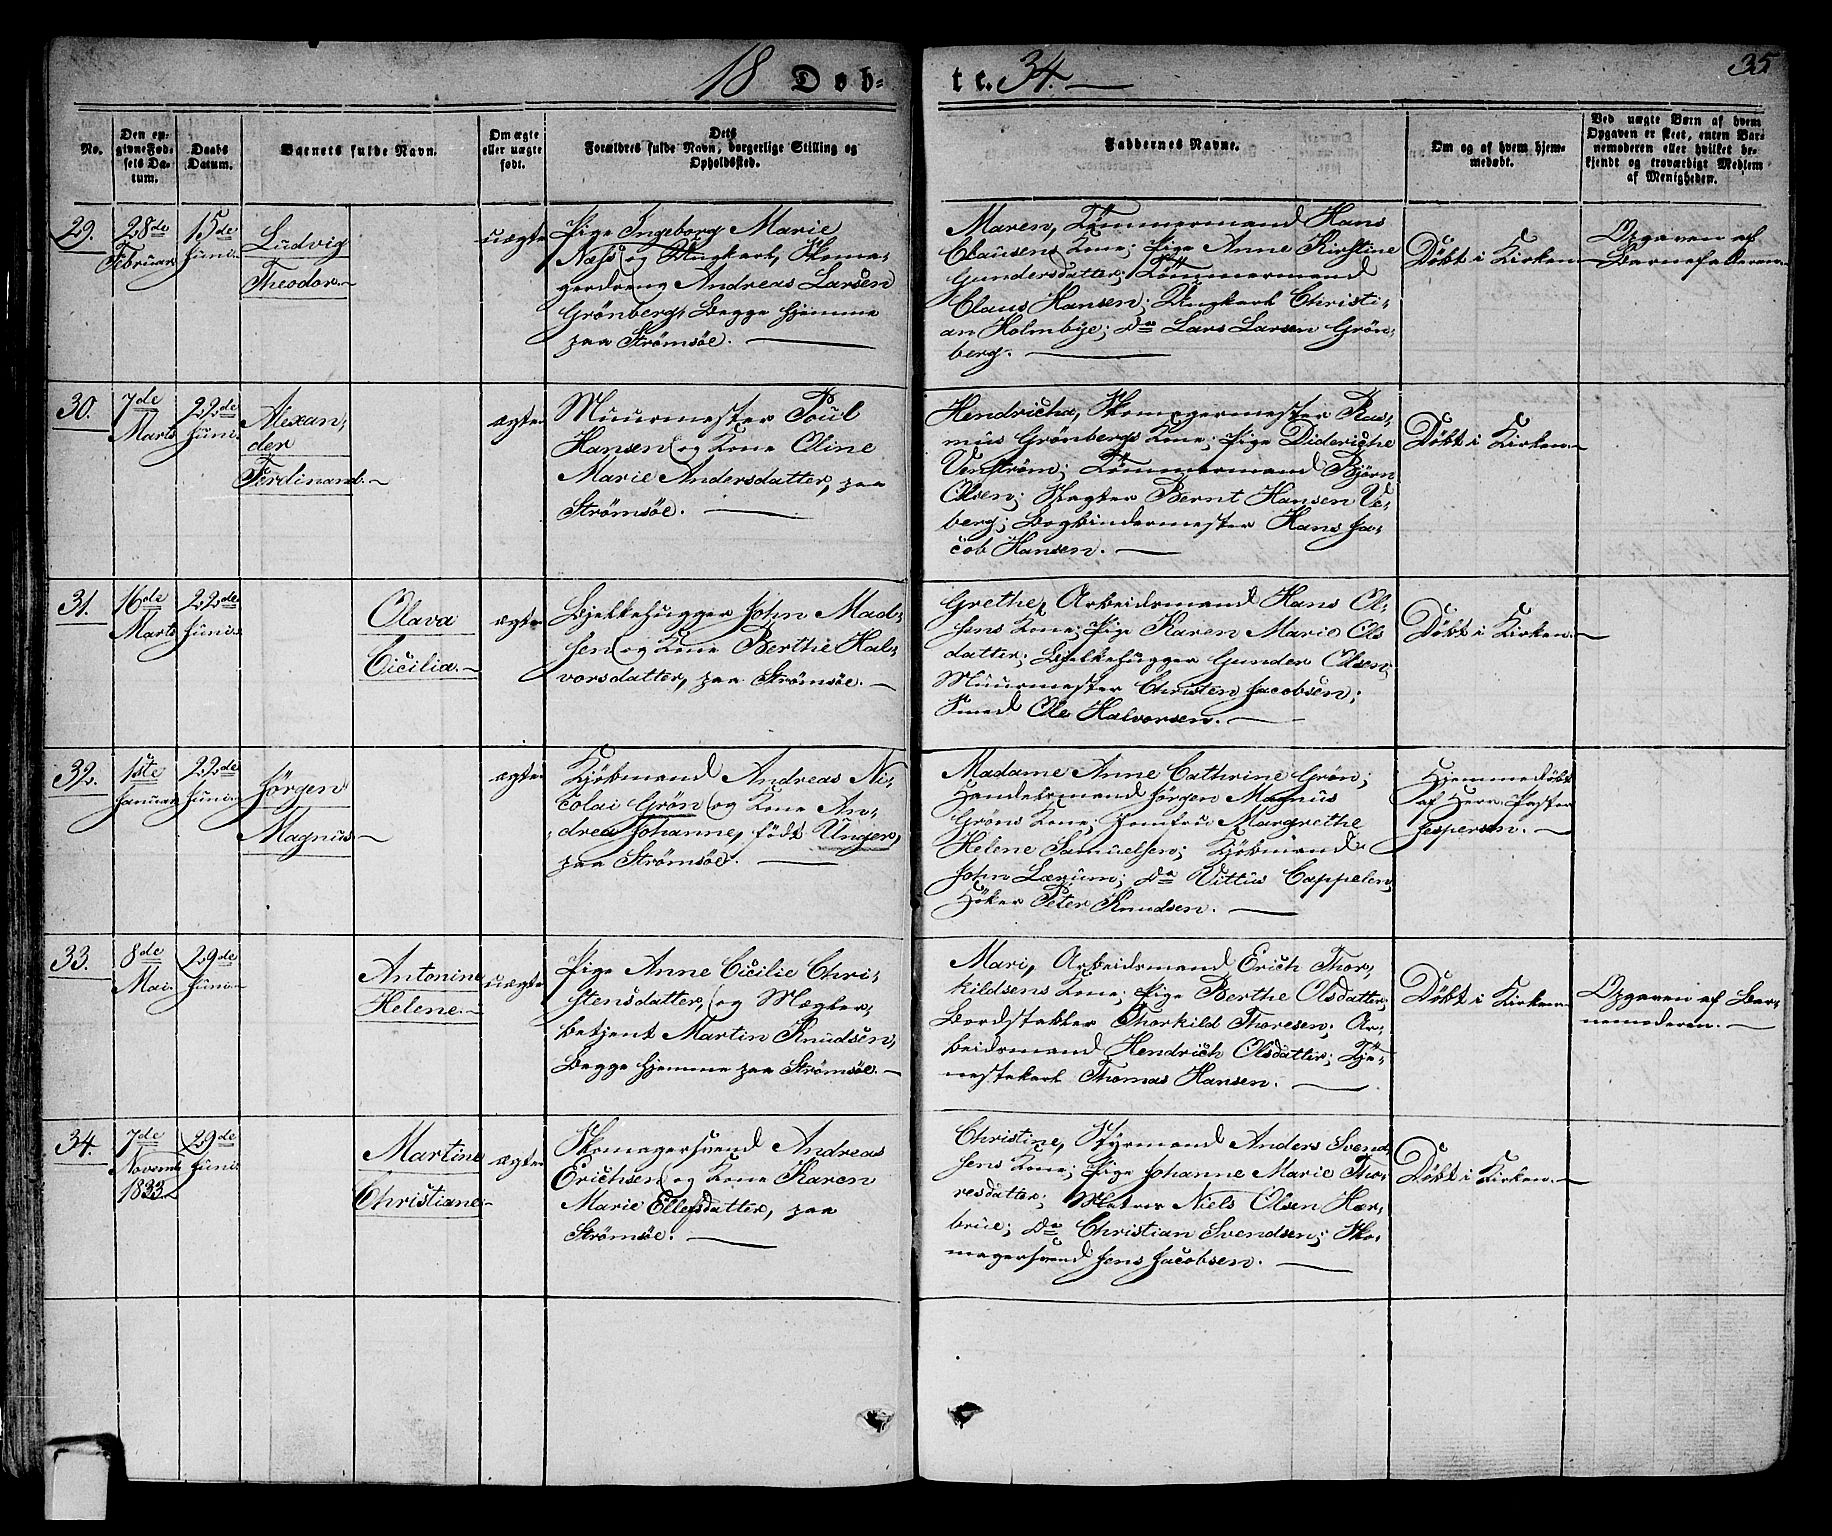 18 Døb=
te. 34.
35
No.
Den en-
givne Fød-
sels Da-
tum.
Daabs
Datum.
Barnets fulde Navn.
Om ægte
eller uægte
født.
Dets
Forældres fulde Navn, borgerlige Stilling og
Opholdssted.
Faddernes Navne.
Om og af hvem hjem-
medøbt.
Ved uægte Børn af hvem
Opgaven er skeet, enten Bar-
nemoderen eller hvilket be-
kjendt og troværdigt Medlem
af Menigheden.
29.
28de
Februar
15de
Juni
Ludvig
Theodor.
uægte
Pige Ingeborg Marie
Næss og Ungkarl, Skoma-
gerdreng Andreas Larsen
Grönberg, Begge hjemme
paa Strömsöe.
Maren, Tömmermand Hans
Clausens Kone; Pige Anne Kirstine
Gundersdatter; Tömmermand
Claus Hansen; Ungkarl Christi-
an Holmbye; do Lars Larsen Grön-
berg.
Döbt i Kirken
Opgaven af
Barnefaderen.
30.
7de
Marts
22de
Juni
Alexan-
der
Ferdinand.
ægte
Muurmester Poul
Hansen og Kone Oline
Marie Andersdatter, paa
Strömsöe.
Hendricha, Skomagermester Ras-
mus Grönbergs Kone; Pige Dideriche
Venström; Tömmermand Björn
Olsen; Vægter Bernt Hansen Ve-
berg; Bogbindermester Hans Ja-
cob Hansen.
Döbt i Kirken.
31.
16de
Marts
22de
Juni
Olava
Cicilia.
ægte
Bjelkehugger John Mad-
sen og Kone Berthe Hal-
vorsdatter, paa Strömsöe.
Grethe, Arbeidsmand Hans Ol-
sens Kone; Pige Karen Marie Ols
datter; Bjelkehugger Gunder Olsen;
Muurmester Christen Jacobsen;
Smed Ole Halvorsen.
Döbt i Kirken.
32.
1ste
Januar
22de
Juni
Jörgen
Magnus
ægte
Kjöbmand Andreas Ni-
colai Grön og Kone An-
drea Johanne, födt Unger,
paa Strömsöe.
Madame Anne Cathrine Grön;
Handelsmand Jörgen Magnus
Gröns Kone; Jomfru Margrethe
Helene Samuelsen; Kjöbmand
John Lærum; do Vittus Cappelen;
Höker Peter Knudsen.
Hjemmedöbt
af Herr Pastor
Jespersen.
33.
8de
Mai
29de
Juni
Antonine
Helene.
uægte
Pige Anne Cicilie Chri-
stensdatter, og Mægler-
betjent Martin Knudsen,
Begge hjemme paa Strömsöe.
Mari, Arbeidsmand Erich Thor-
kildsens Kone; Pige Berthe Olsdatter;
Bordstabler Thorkild Thoresen; Ar-
beidsmand Hendrich Olsdatter; Tje-
nestekarl Thomas Hansen.
Döbt i Kirken
Opgaven af Bar-
nemoderen.
34.
7de
Novemb.
1833
29de
Juni
Martine
Christiane
ægte
Skomagersvend Andreas
Erichsen og Kone Karen
Marie Ellefsdatter, paa
Strömsöe.
Christine, Styrmand Anders Svend-
sens Kone; Pige Johanne Marie Tho-
resdatter; Matros Niels Olsen Hær-
brue; do Christian Svendsen; Sko-
magersvend Jens Jacobsen.
Döbt i Kirken.